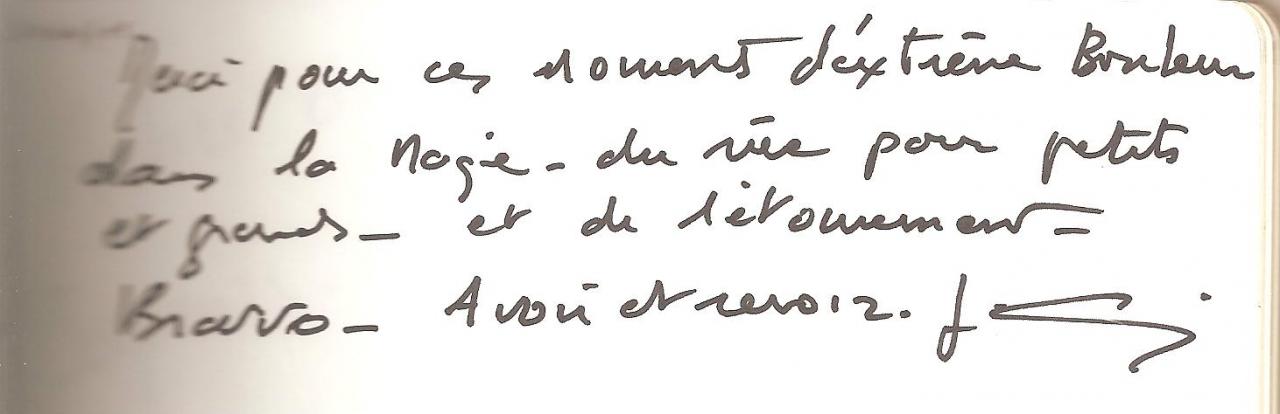 Merci pour ces moments d'éxtrême Bonheur
dans la Magie - du rêve pour petits
et grands - et de l'étonnement -
Bravo - A voir et revoir.